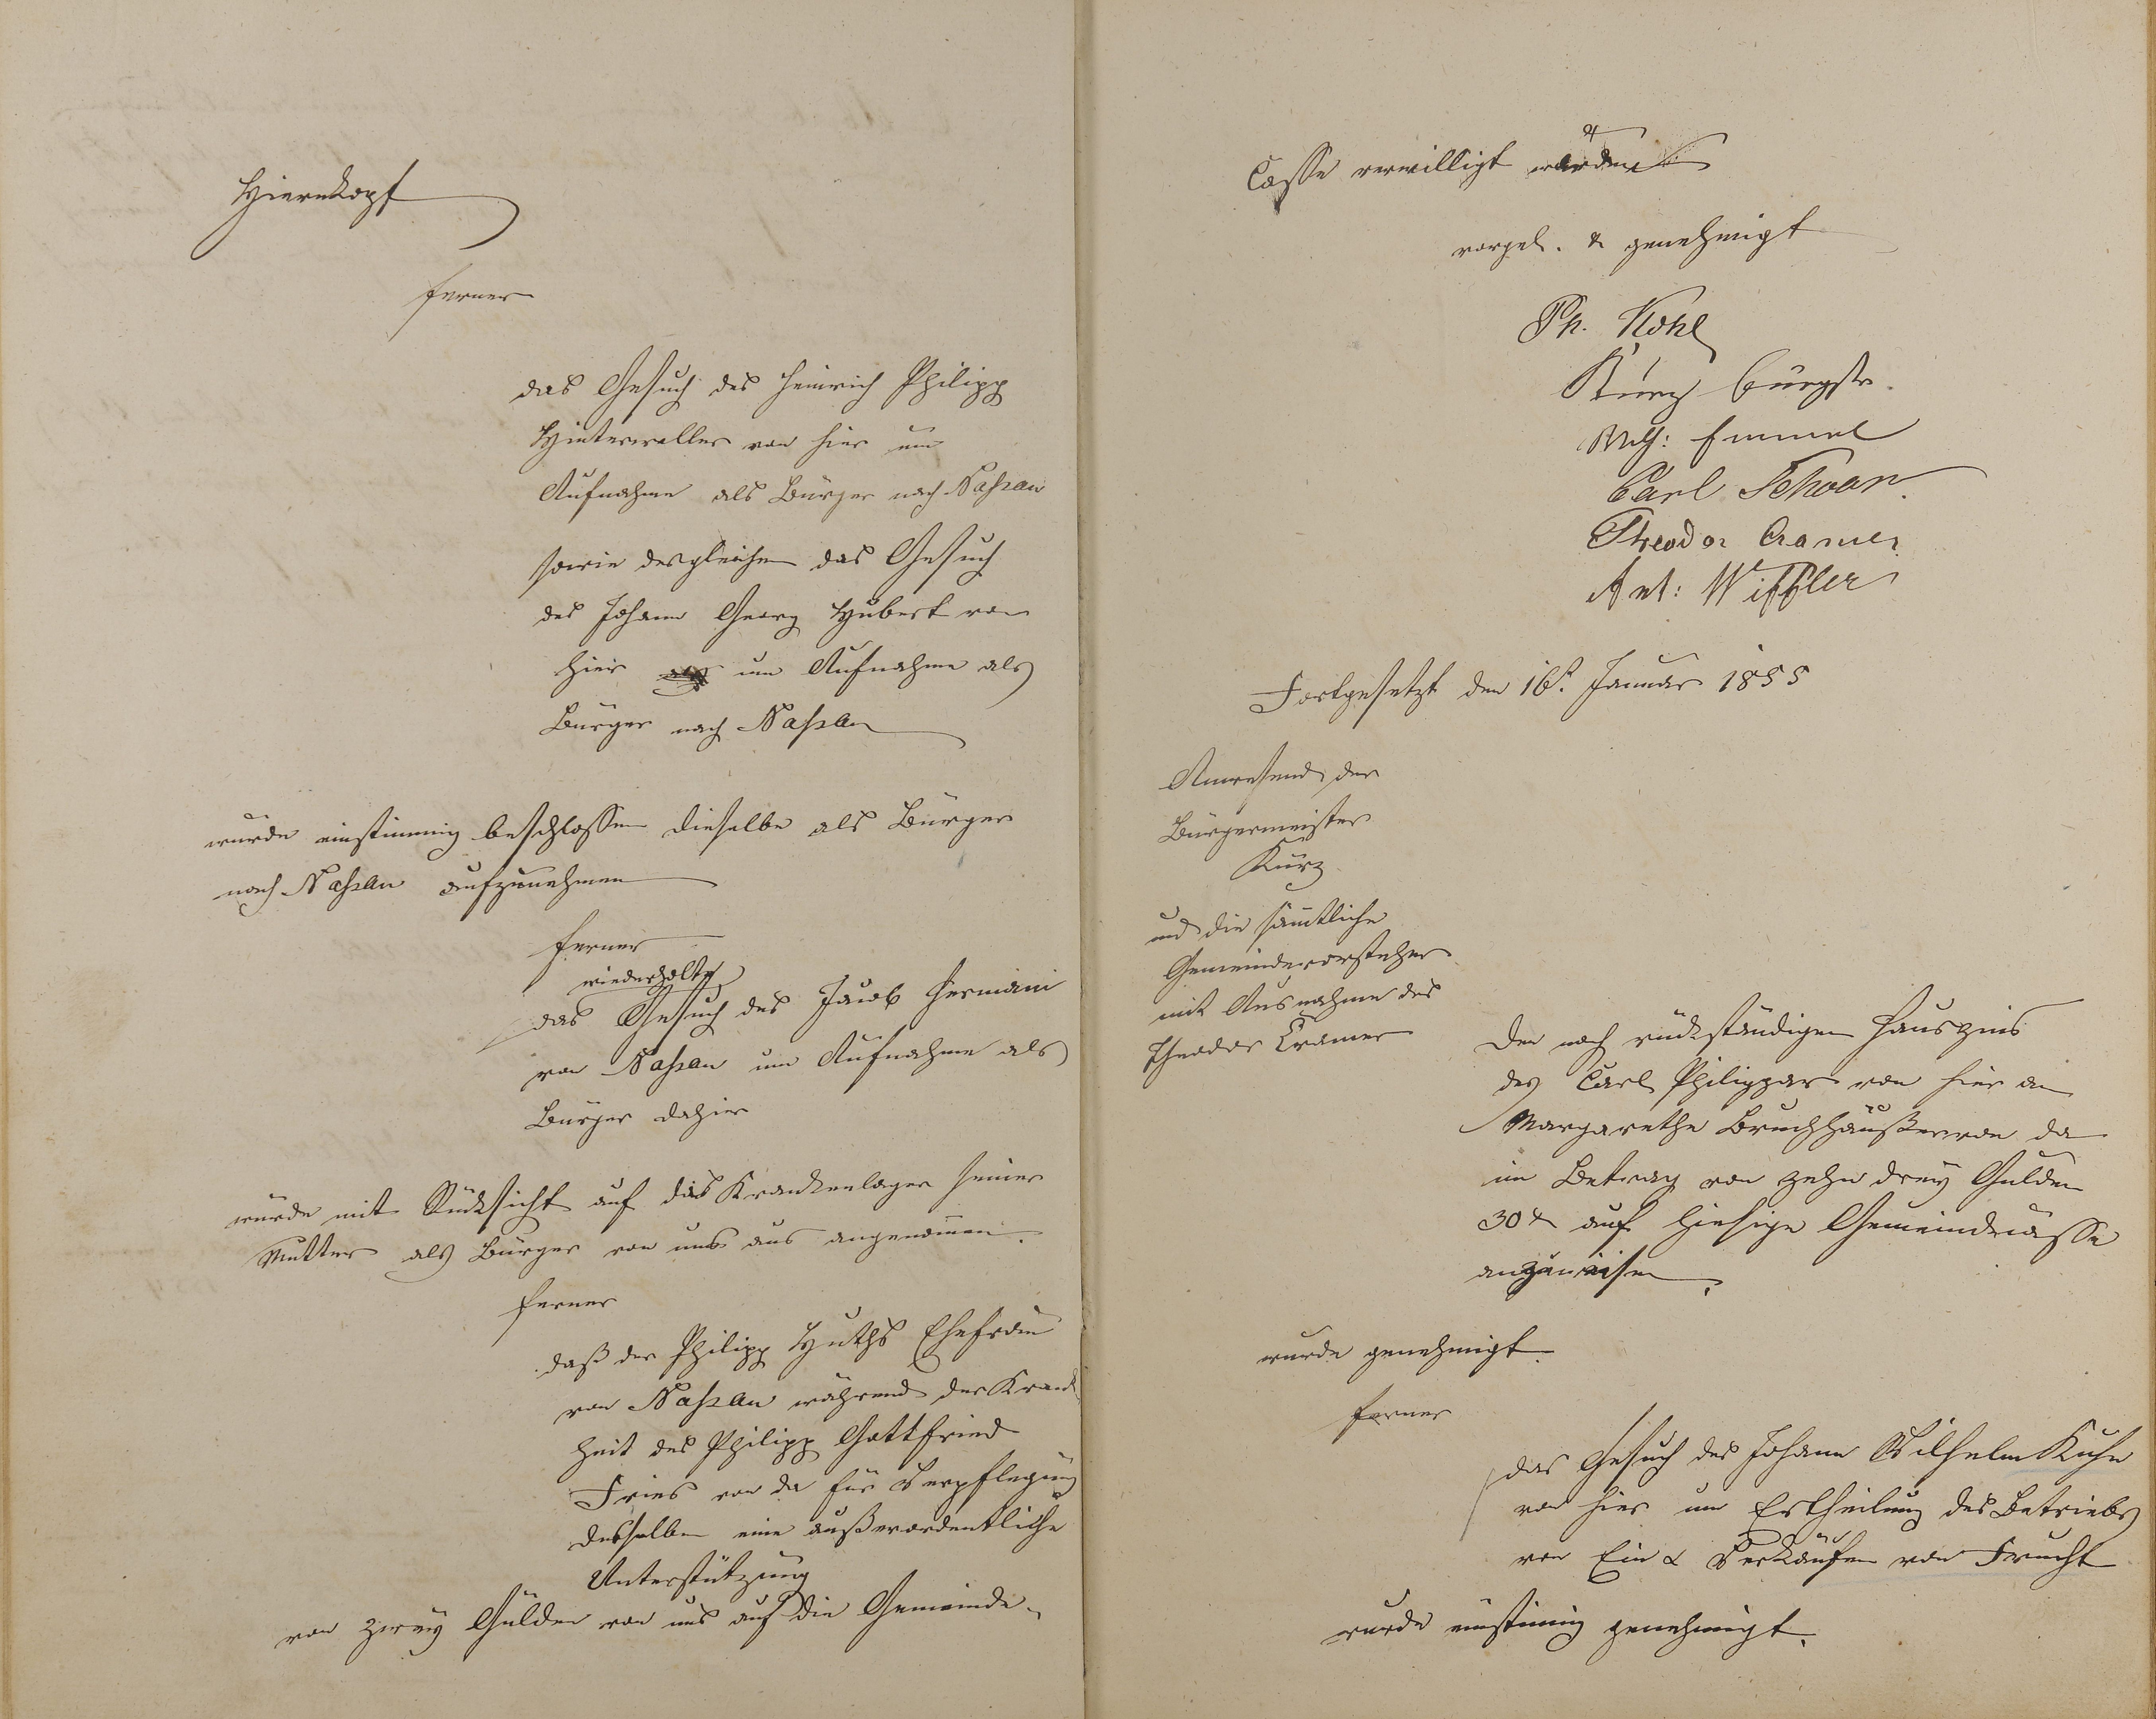 Hiernkopf
ferner
das Gesuch des Heinrich Philipp
Hinterweller von hier um
Aufnahme als Bürger nach Nassau
sowie desgleichen das Gesuch
des Johann Georg Hubert von
hier um Aufnahme als
Bürger nach Nassau
wurde einstimmig beschlossen dieselbe als Bürger
nach Nassau aufzunehmen
ferner
wiederholte
das Gesuch des Jacob Hermani
von Nassau um Aufnahme als
Bürger dahier
wurde mit Rücksicht auf das Krankenlager seiner
Mutter als Bürger von uns aus angenomen.
ferner
daß der Philipp Huths Ehefrau
von Nassau während der Krank
heit des Philipp Gottfried
Fries von da für Verpflegung
desselben eine außerordentliche
Unterstützung
von zwey Gulden von uns auf die Gemeinde-
Casse verwilligt
vorgel. & genehmigt
Ph. Kohl
Kurz Bürgstr.
Wlh: Emmel
Carl Schoan
Theodor Cramer
Ant: Wiffler
Fortgesetzt den 16t. Januar 1855
Anwesend der
Bürgermeister
Kurz
und die sämtliche
Gemeindevorsteher
mit Ausnahme des
Theodor Cramer
Der noch rückständigen Hauszins
des Carl Philippar von hier an
Margarethe Bruchhäußer von da
im Betrag von zehn drey Gulden
30 x auf hiesige Gemeindecasse
anzuweisen.
wurde genehmigt.
ferner
das Gesuch des Johann Wilhelm Kuhn
von hier um Ertheilung des Betriebs
von Ein & Verkäufen von Frucht
wurde einstimig genehmigt.